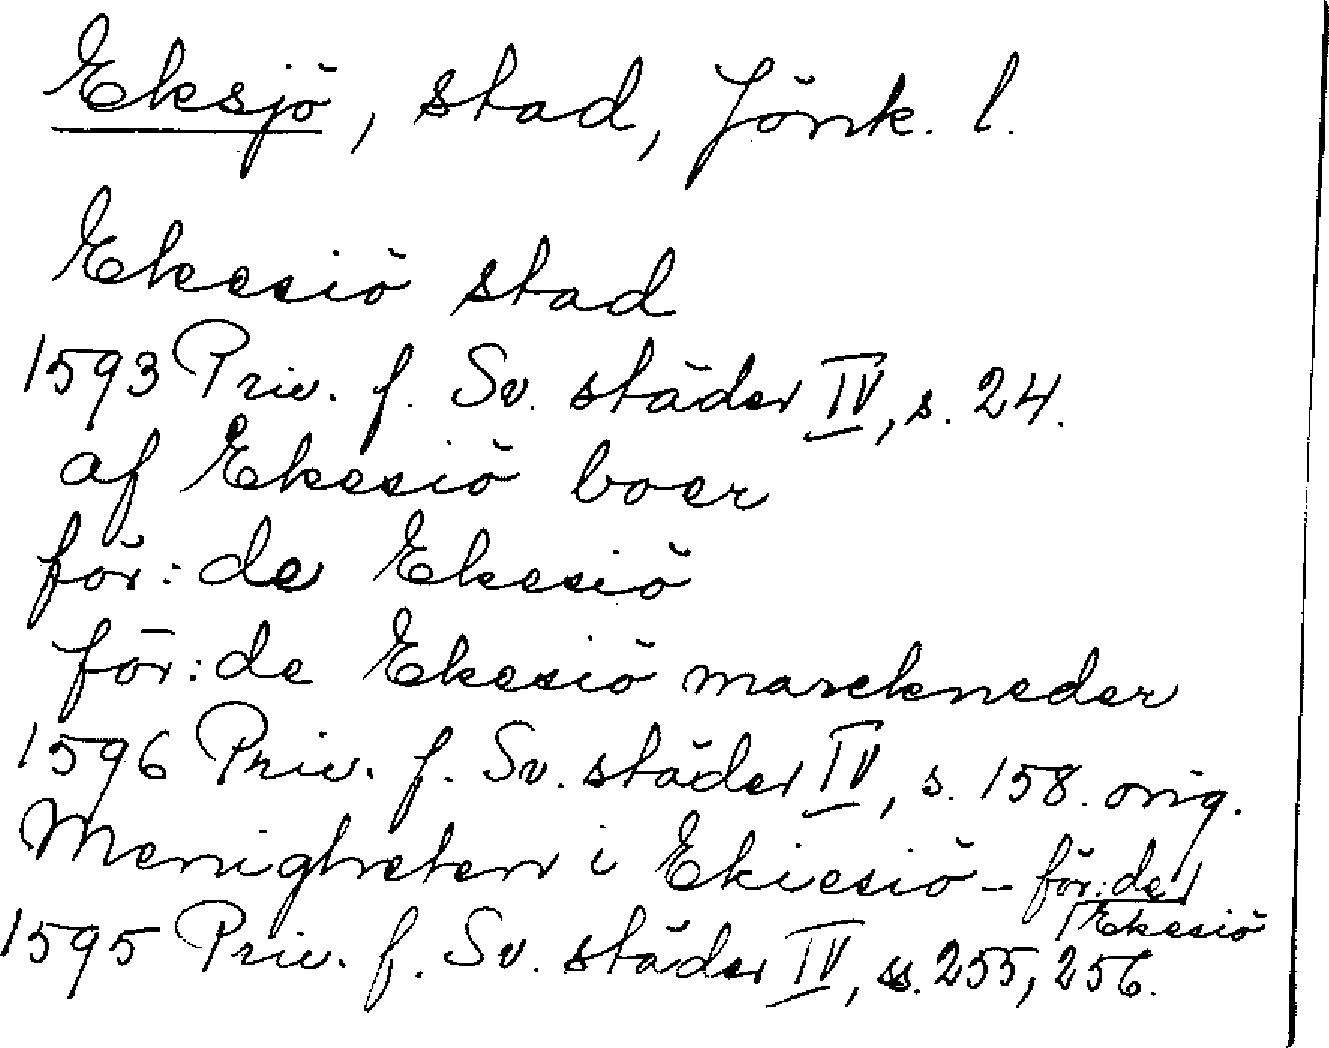 Eksjö, stad, Jönk. l.
Ekesiö stad
1593 Priv. f. Sv. städer IV, s. 24.
af Ekesiö boer
för:de Ekesiö
för:de Ekesiö marckneder
1596 Priv. f. Sv. städer IV, s. 158. orig.
Menigheten i Ekiesiö – för:de
Ekesiö
1595 Priv. f. Sv. städer IV, ss. 255, 256.